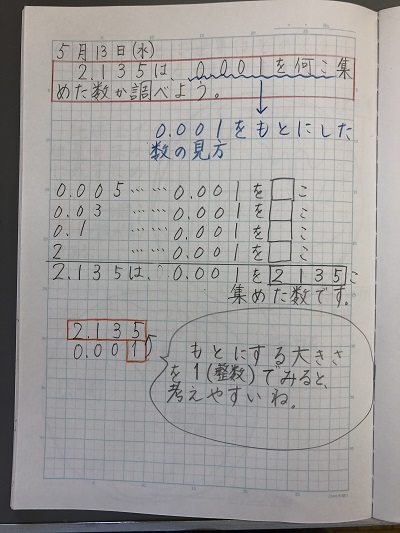 5月13日(水)
2.135は、0.001を何こ集
めた数か調べよう。
0.001をもとにした
数の見方
0.005……0.001を□こ
0.03……0.001を□こ
0.1……0.001を□こ
2……0.001を□こ
2.135は、0.001を2135こ
集めた数です。
2.135
0.001
もとにする大きさ
を1(整数)でみると、
考えやすいね。